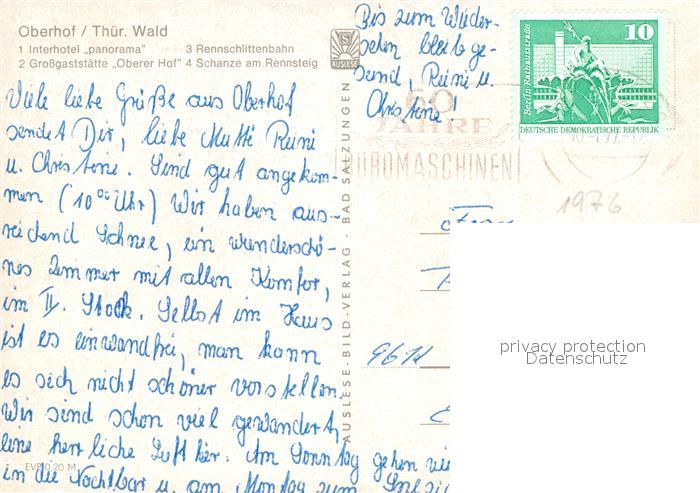 Oberhof / Thür. Wald
1 Interhotel „panorama" 3 Rennschlittenbahn
2 Großgaststätte „Oberer Hof" 4 Schanze am Rennsteig
Viele liebe Grüße aus Oberhof
sendet Dir, liebe Mutti Reini
u. Christene. Sind gut angekom-
men (10⁰⁰ Uhr) Wir haben aus-
reichend Schnee, ein wunderschö-
nes Zimmer mit allen Komfor,
im II. Stock. Selbst im Haus
ist es einwandfrei, man kann
es sich nicht schöner vorstellen.
Wir sind schon viel gewandert,
eine herrliche Luft hier. Am Sonntag gehen wir
in die Nachtbar u. am Montag zum
EVP 0,20 M
Bis zum Wieder-
sehen bleib ge-
sund, Reini u.
Christene!
S
AUSLESE
AUSLESE-BILD-VERLAG · BAD SALZUNGEN
60
JAHRE
BÜROMASCHINEN
10
Berlin, Rathausstraße
DEUTSCHE DEMOKRATISCHE REPUBLIK
1976
privacy protection
Datenschutz